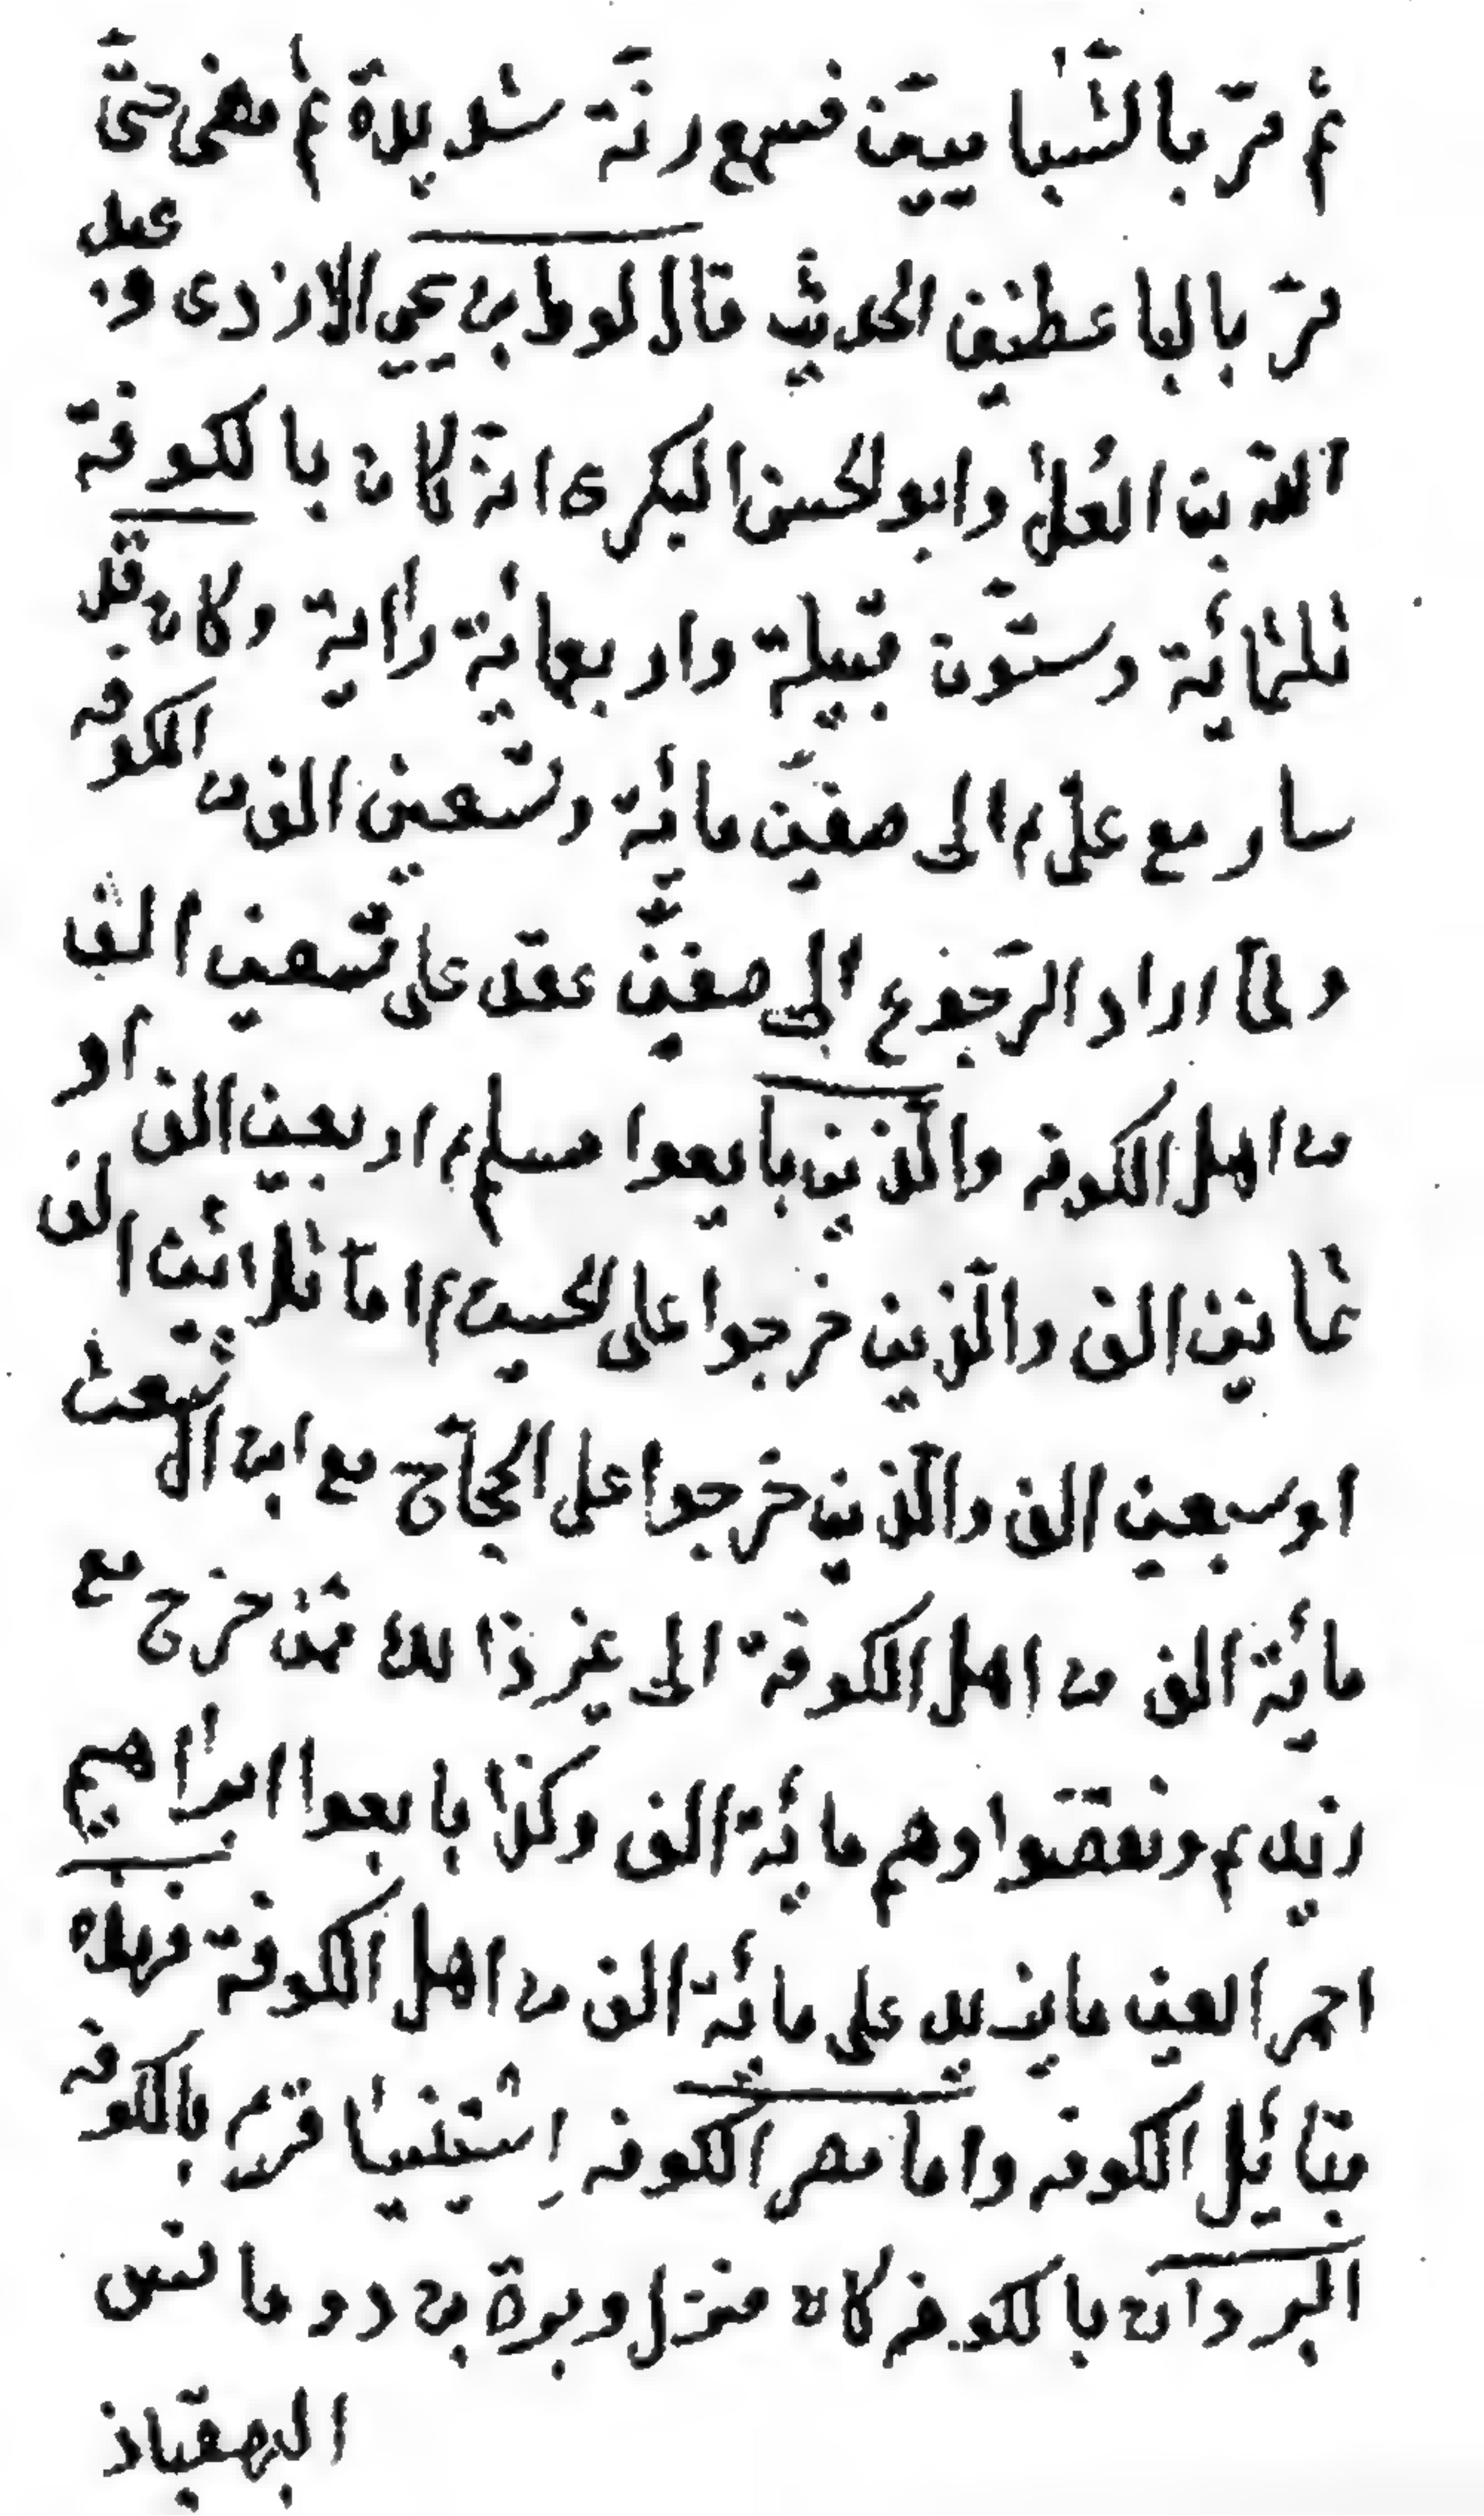 ثم مرّ بالشّباميين فسمع رنّة شديدة ثم مضى حتّى
مرّ بالباعطيين الحديث قال لوط بن يحيى الازدى وعبد
الله بن العلٰى وابو الحسن البكرى انّه كان بالكوفة
ثلثمائة وستّون قبيلة واربعمائة رأية وكان قد
سار مع علىّ م الى صفّين مائة وتسعين الف من الكوفة
ولمّا اراد الرّجوع الى صفّين عقد على تسعين الف
من اهل الكوفة والّذين بايعوا مسلم م اربعين الف او
ثمانين الف والّذين خرجوا على الحسين م امّا ثلاثين الف
او سبعين الف والّذين خرجوا على الحجّاج مع ابن الاشعث
مائة الف من اهل الكوفة الى غير ذالك ممّن خرج مع
زيد م ونقضوا وهم مائة الف وكذا بايعوا ابراهيم
احمر العين مايزيد على مائة الف من اهل الكوفة فهذه
قبائل الكوفة واما مصر الكوفة اِستينيا قرية بالكوفة
البردان بالكوفة كان منزل وبرة بن رومانس
البهقباذ